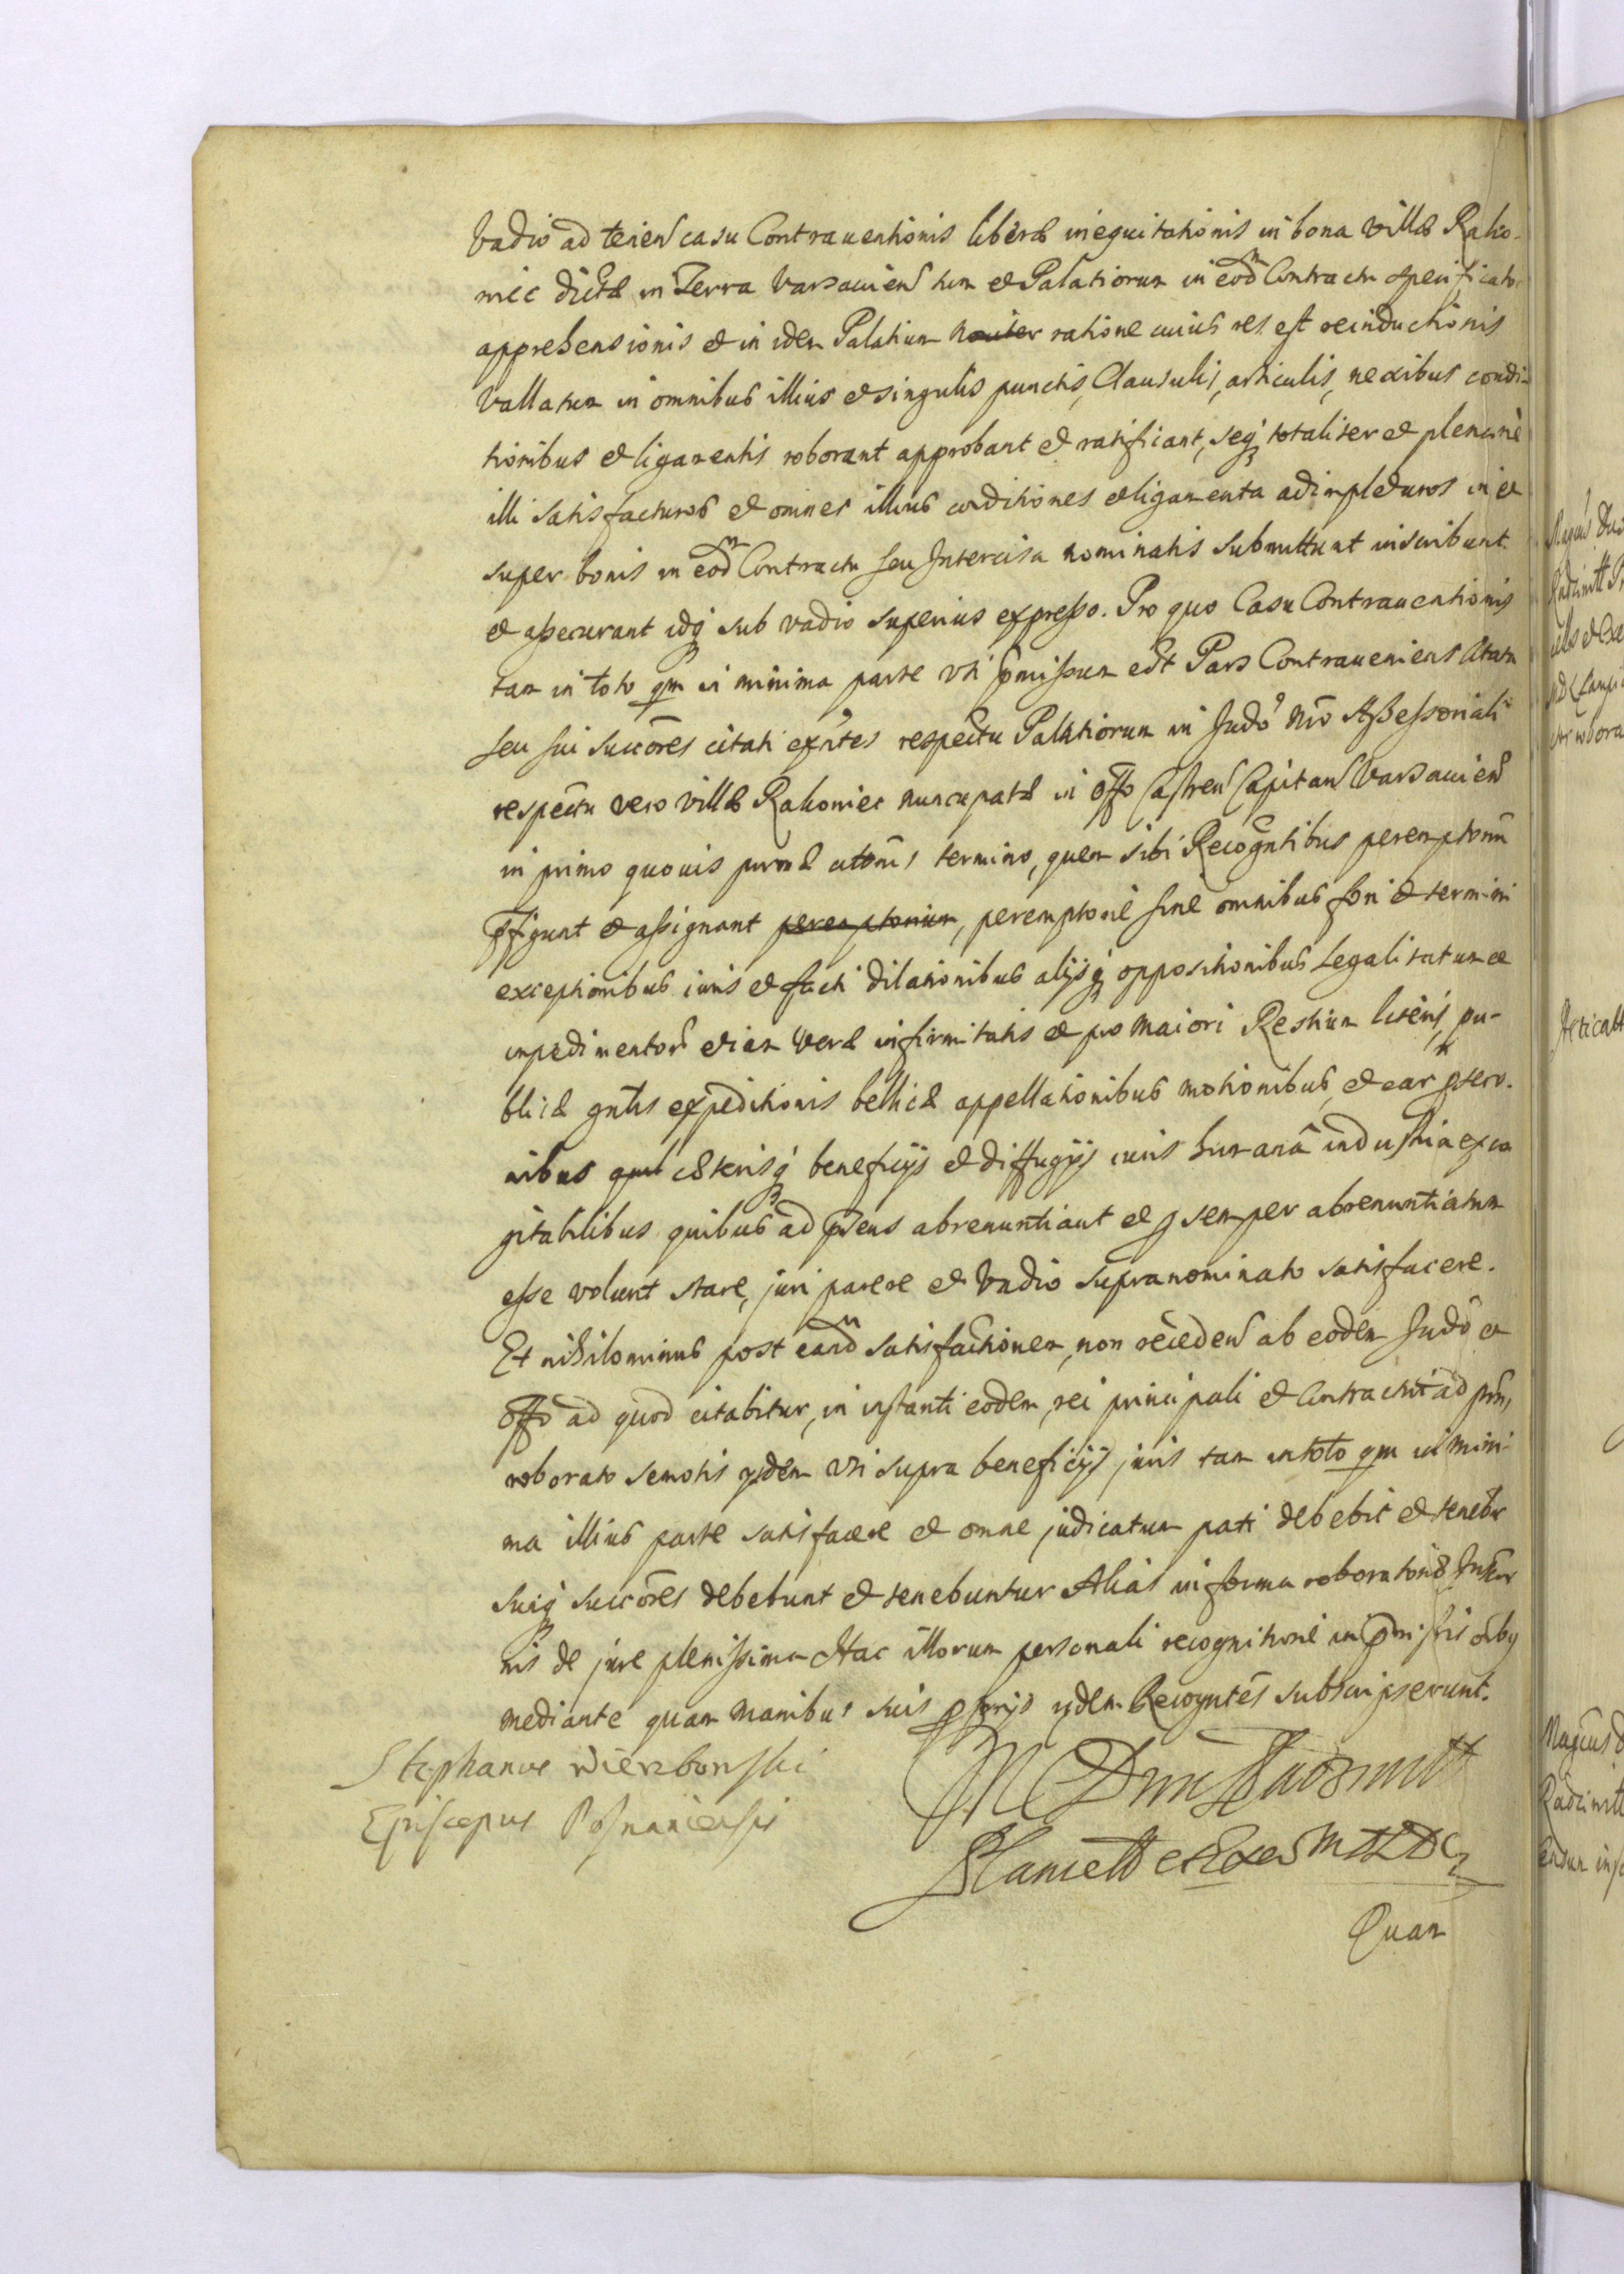 Vadio ad tenen casu Contrauentionis liberæ inequitationis in bona villæ Rako-
miec dictæ in Terra Varsauien tum et Palatiorum in eodm Contractu specificator
apprehensionis et in idem Palatium nouiter ratione cuius res est reinductionis
Vallatum in omnibus illius et singulis punctis, Clausulis, articulis, nexibus condi-
tionibus et ligamentis roborant approbant et ratificant, seq totaliter et plenarie
illi satisfacturos et omnes illius conditiones et ligamenta adimpleturos in et
super bonis in eodm Contractu seu Intercisa nominatis submittunt inscribunt
et assecurant idq sub vadio superius expresso. Pro quo Casu Contrauentionis
tam in toto qm in minima parte vti pmissum est Pars Contraueniens citata
seu sui succores citati exntes respectu Palatiorum in Judo nro Assessoriali
respectu vero villæ Rakomiec nuncupatæ in offo Castren Capitan Varsauien
in primo quouis puræ citonis termino, quem sibi Recogntibus peremptorm
pfigunt et assignant peremptorium, peremptorie sine omnibus fori et termini
exceptionibus iuris et facti dilationibus alijsq oppositionibus Legalitatum et
impedimentor etiam veræ infirmitatis et pro maiori Restium literis, pu-
blicæ gntis expeditionis bellicæ appellationibus motionibus, et ear psecu-
nibus cæterisq beneficijs et diffugijs iuris humanâ industria exco
gitabilibus quibus ad psens abrenuntiant et p semper abrenuntiatum
esse volunt stare, juri parere et Vadio supranominato satisfacere.
Et nihilominus post eandm satisfactionem, non recedens ab eodem Judo et
offo ad quod citabitur, in instanti eodem, rei principali et Contractui ad pns,
roborato semotis ijsdem vti supra beneficijs juris tam in toto qm in mini-
ma illius parte satisfacere et omne judicatum pati debebit et tenebr
suiq succores debebunt et tenebuntur Alias in forma roborationis Inscr
nis de jure plenissima Hac illorum personali recognitione in pmissis oibus
mediante quam manibus suis pprijs ijdem Recogntes subscripserunt.
Stephanus Wierzbowski
Episcopus Posnaniensis
Quam